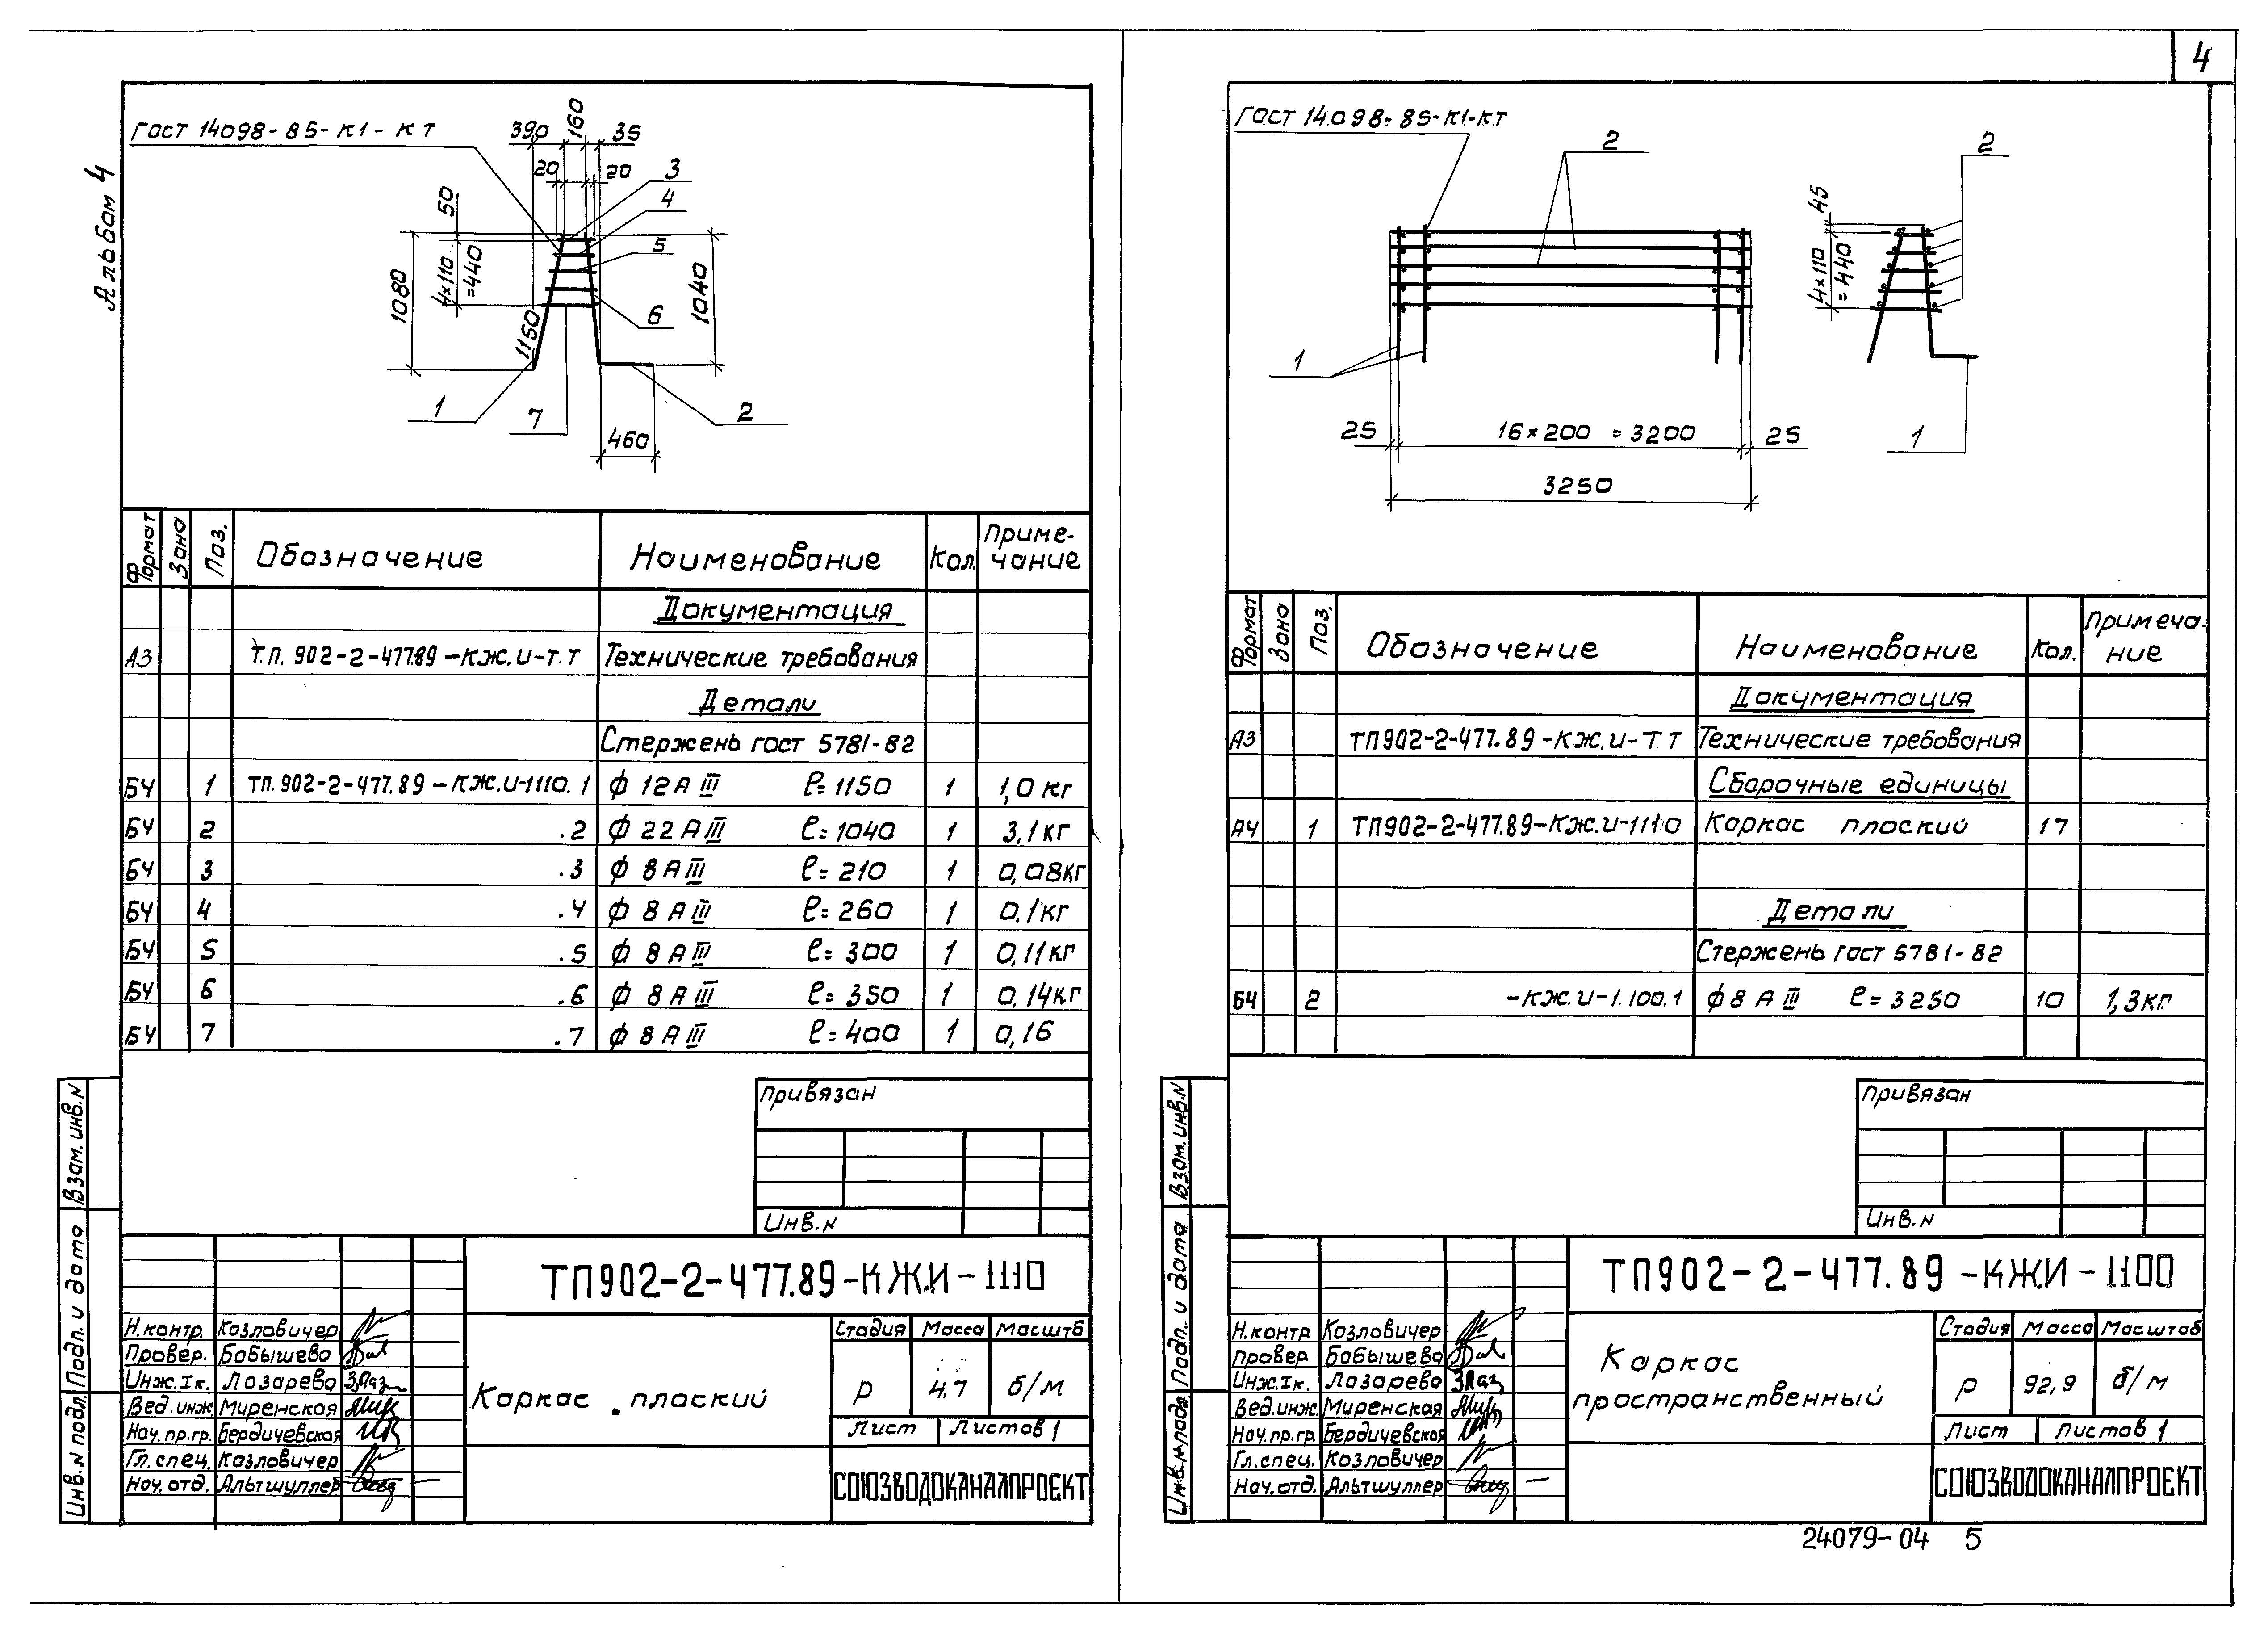 4
Альбом 4
ГОСТ 14098-85-К1-КТ
390 160 35
20 20
3
4
5
6
50
4×110 =440
1080
1150
1040
1
7
2
460
Формат Зона Поз. Обозначение Наименование Кол. Примечание
Документация
А3 Т.П. 902-2-477.89-КЖ.И-Т.Т Технические требования
Детали
Стержень ГОСТ 5781-82
БЧ 1 ТП.902-2-477.89-КЖ.И-1110.1 ф 12 А III ℓ=1150 1 1,0 кг
БЧ 2 .2 ф 22 А III ℓ=1040 1 3,1 кг
БЧ 3 .3 ф 8 А III ℓ=210 1 0,08кг
БЧ 4 .4 ф 8 А III ℓ=260 1 0,1кг
БЧ 5 .5 ф 8 А III ℓ=300 1 0,11кг
БЧ 6 .6 ф 8 А III ℓ=350 1 0,14кг
БЧ 7 .7 ф 8 А III ℓ=400 1 0,16
Привязан
Инв.N
Взам.инв.N
Подп. и дата
Инв.N подл.
ТП902-2-477.89-КЖ.И-1110
Н.контр. Козловичер
Провер. Бабышева
Инж.Iк. Лазарева
Вед.инж. Миренская
Нач.пр.гр. Бердичевская
Гл.спец. Козловичер
Нач.отд. Альтшуллер
Каркас плоский
Стадия Масса Масштб
Р 4.7 б/м
Лист Листов 1
СОЮЗВОДОКАНАЛПРОЕКТ
ГОСТ 14.098-85-К1-КТ
2
2
45
4×110 =440
1
1
25 16×200 =3200 25
3250
Формат Зона Поз. Обозначение Наименование Кол. Примечание
Документация
А3 ТП902-2-477.89-КЖ.И-Т.Т Технические требования
Сборочные единицы
А4 1 ТП902-2-477.89-КЖ.И-1110 Каркас плоский 17
Детали
Стержень ГОСТ 5781-82
БЧ 2 -КЖ.И-1.100.1 ф 8 А III ℓ=3250 10 1,3кг
Привязан
Инв.N
Взам.инв.N
Подп. и дата
Инв.N подл.
ТП902-2-477.89-КЖ.И-1100
Н.контр Козловичер
Провер Бабышева
Инж.Iк. Лазарева
Вед.инж. Миренская
Нач.пр.гр. Бердичевская
Гл.спец. Козловичер
Нач.отд. Альтшуллер
Каркас
пространственный
Стадия Масса Масштаб
Р 92,9 б/м
Лист Листов 1
СОЮЗВОДОКАНАЛПРОЕКТ
24079-04 5